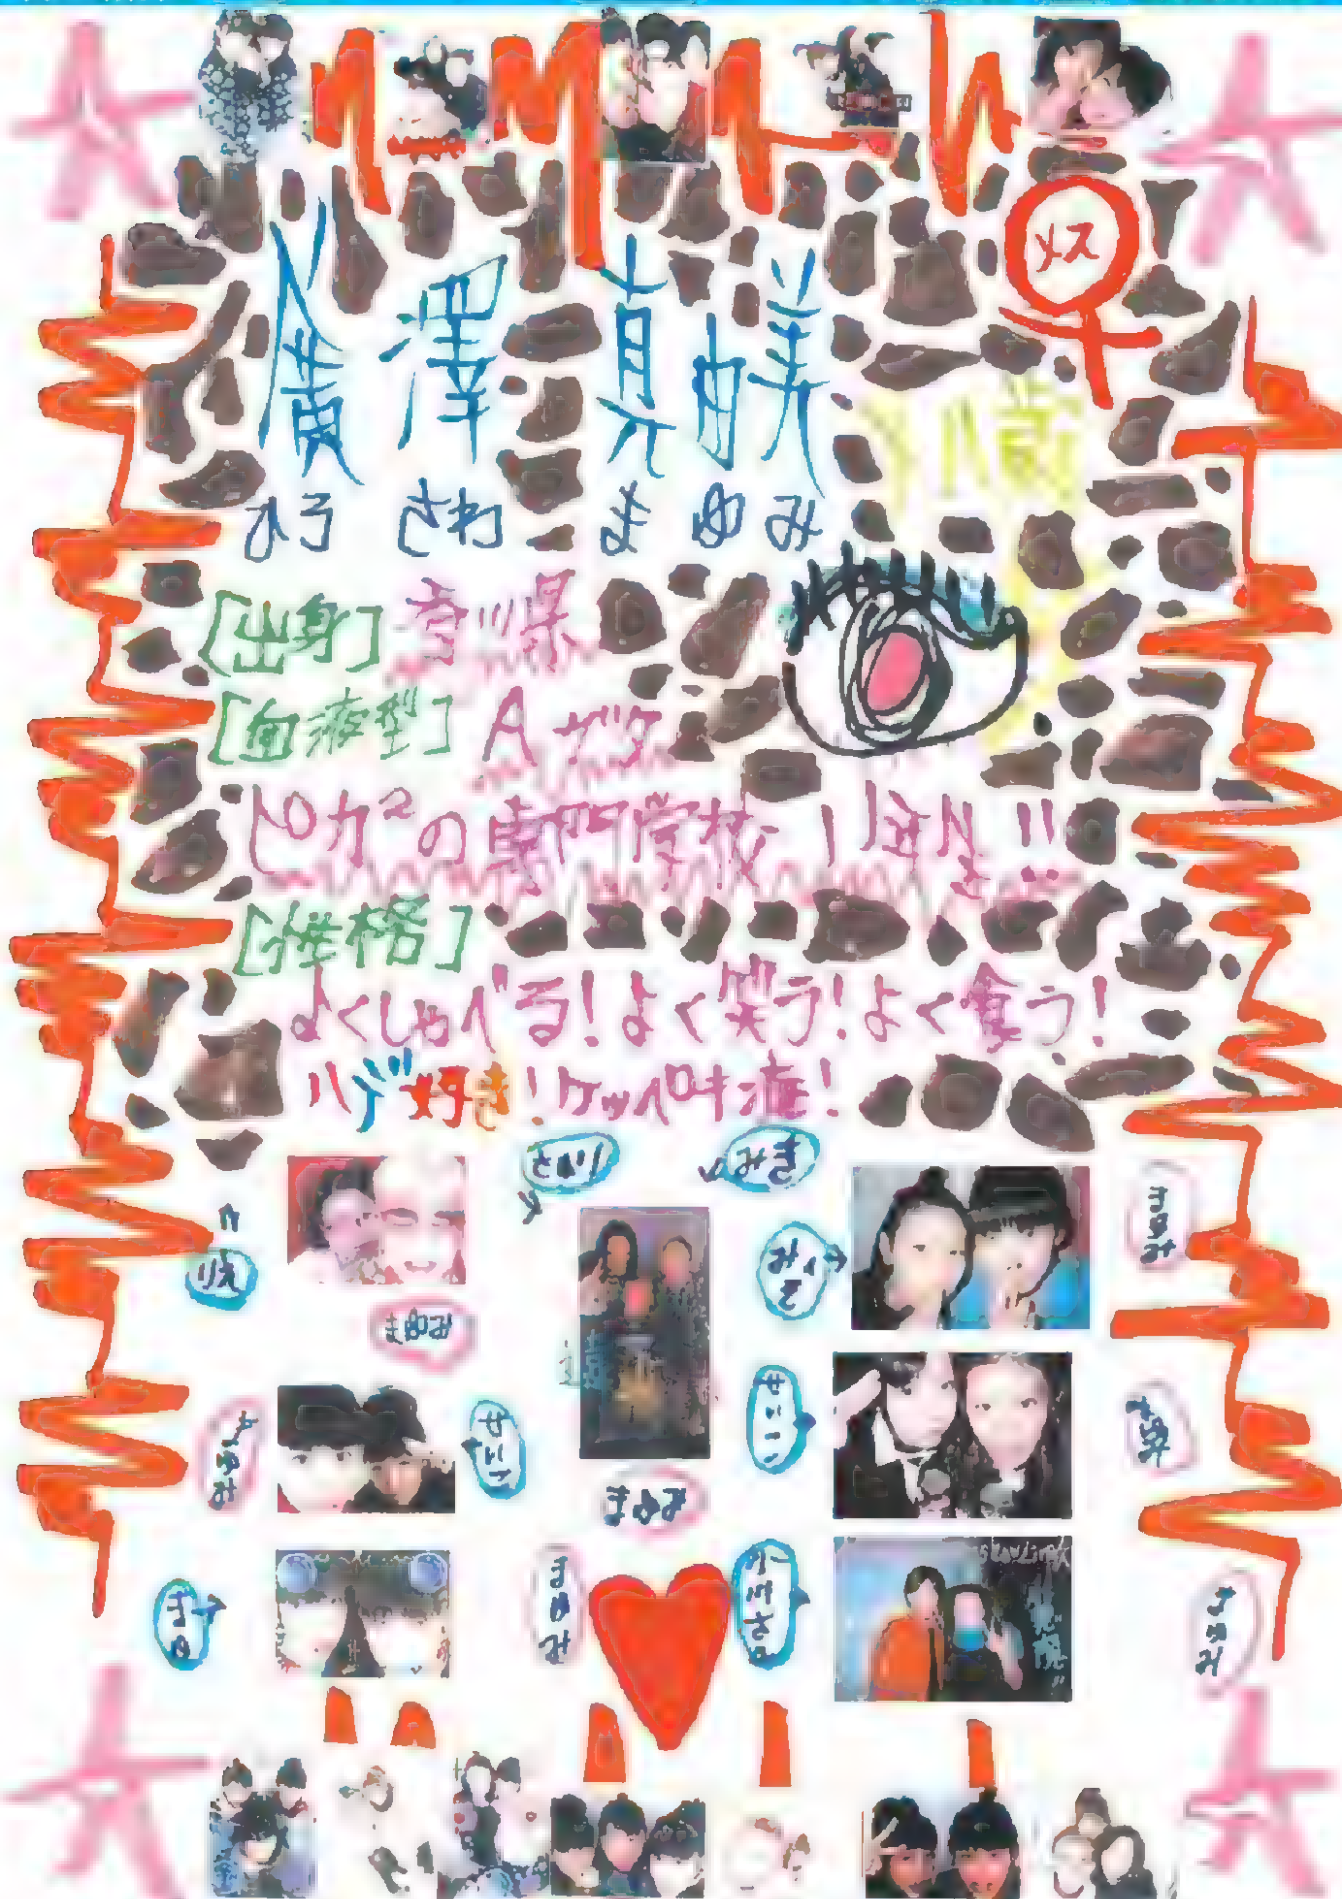 メス
廣澤 真由美
ひろ さわ まゆみ
[出身] 香川県
[血液型] A ガタ
ピカ²の専門学校1年生!!
[性格]
よくしゃべる!よく笑う!よく食う!
ハデ好き!ケッペキ症!
さおり
みき
りえ
まゆみ
せいこ
まゆみ
せいこ
まゆみ
まゆみ
まゆみ